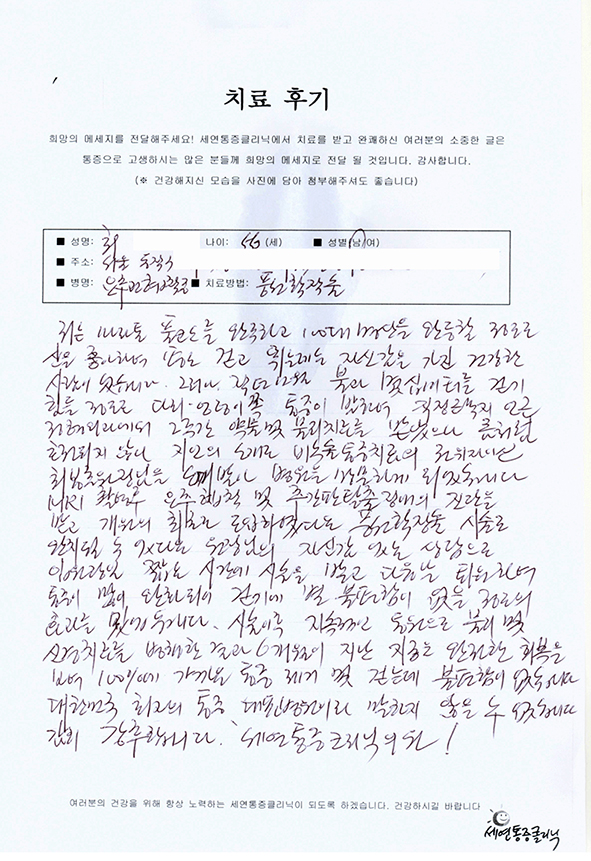 치료 후기
희망의 메세지를 전달해주세요! 세연통증클리닉에서 치료를 받고 완쾌하신 여러분의 소중한 글은
통증으로 고생하시는 많은 분들께 희망의 메세지로 전달 될 것입니다. 감사합니다.
(※ 건강해지신 모습을 사진에 담아 첨부해주셔도 좋습니다)
■ 성명: 최 나이: 56 (세) ■ 성별(남/여)
■ 주소: 서울 동작구
■ 병명: ■ 치료방법: 풍선확장술
저는 마라톤 풀코스를 완주하고 100대 명산을 완등할 정도로
산을 좋아하며 걷고 뛰는데는 자신감을 가진 건강한
사람이 였습니다. 그러나 작년 12월 불과 몇십미터를 걷기
힘들 정도로 다리·엉덩이쪽 통증이 직장근처 모 근
2주간 약물 및 물리치료를 받았으나 큰
않아 지인의 소개로 비수술 통증치료의 권위자이신
최봉춘 원장님을 병원을 방문하게 되었습니다
MRI 촬영후 및 추간판탈출 진단을
받고 최초로 도입하였다는 풍선확장술 시술로
완치될 수 있다는 원장님의 자신감 있는 상담으로
짧은 시간에 시술을 받고 다음날 퇴원하여
통증이 많이 완화되어 걷기에 별 불편함이 없을 정도의
효과를 시술이후 지속적인 물리 및
신경치료를 병행한 결과 6개월이 지난 지금은 완전한 회복을
보여 100%에 가까운 통증 제거 및 걷는데 불편함이 없습니다
대한민국 최고의 통증 대표병원이라 말하지 않을 수 없습니다
감히 강추합니다. 세연통증크리닉의원!
여러분의 건강을 위해 항상 노력하는 세연통증클리닉이 되도록 하겠습니다. 건강하시길 바랍니다
세연통증클리닉